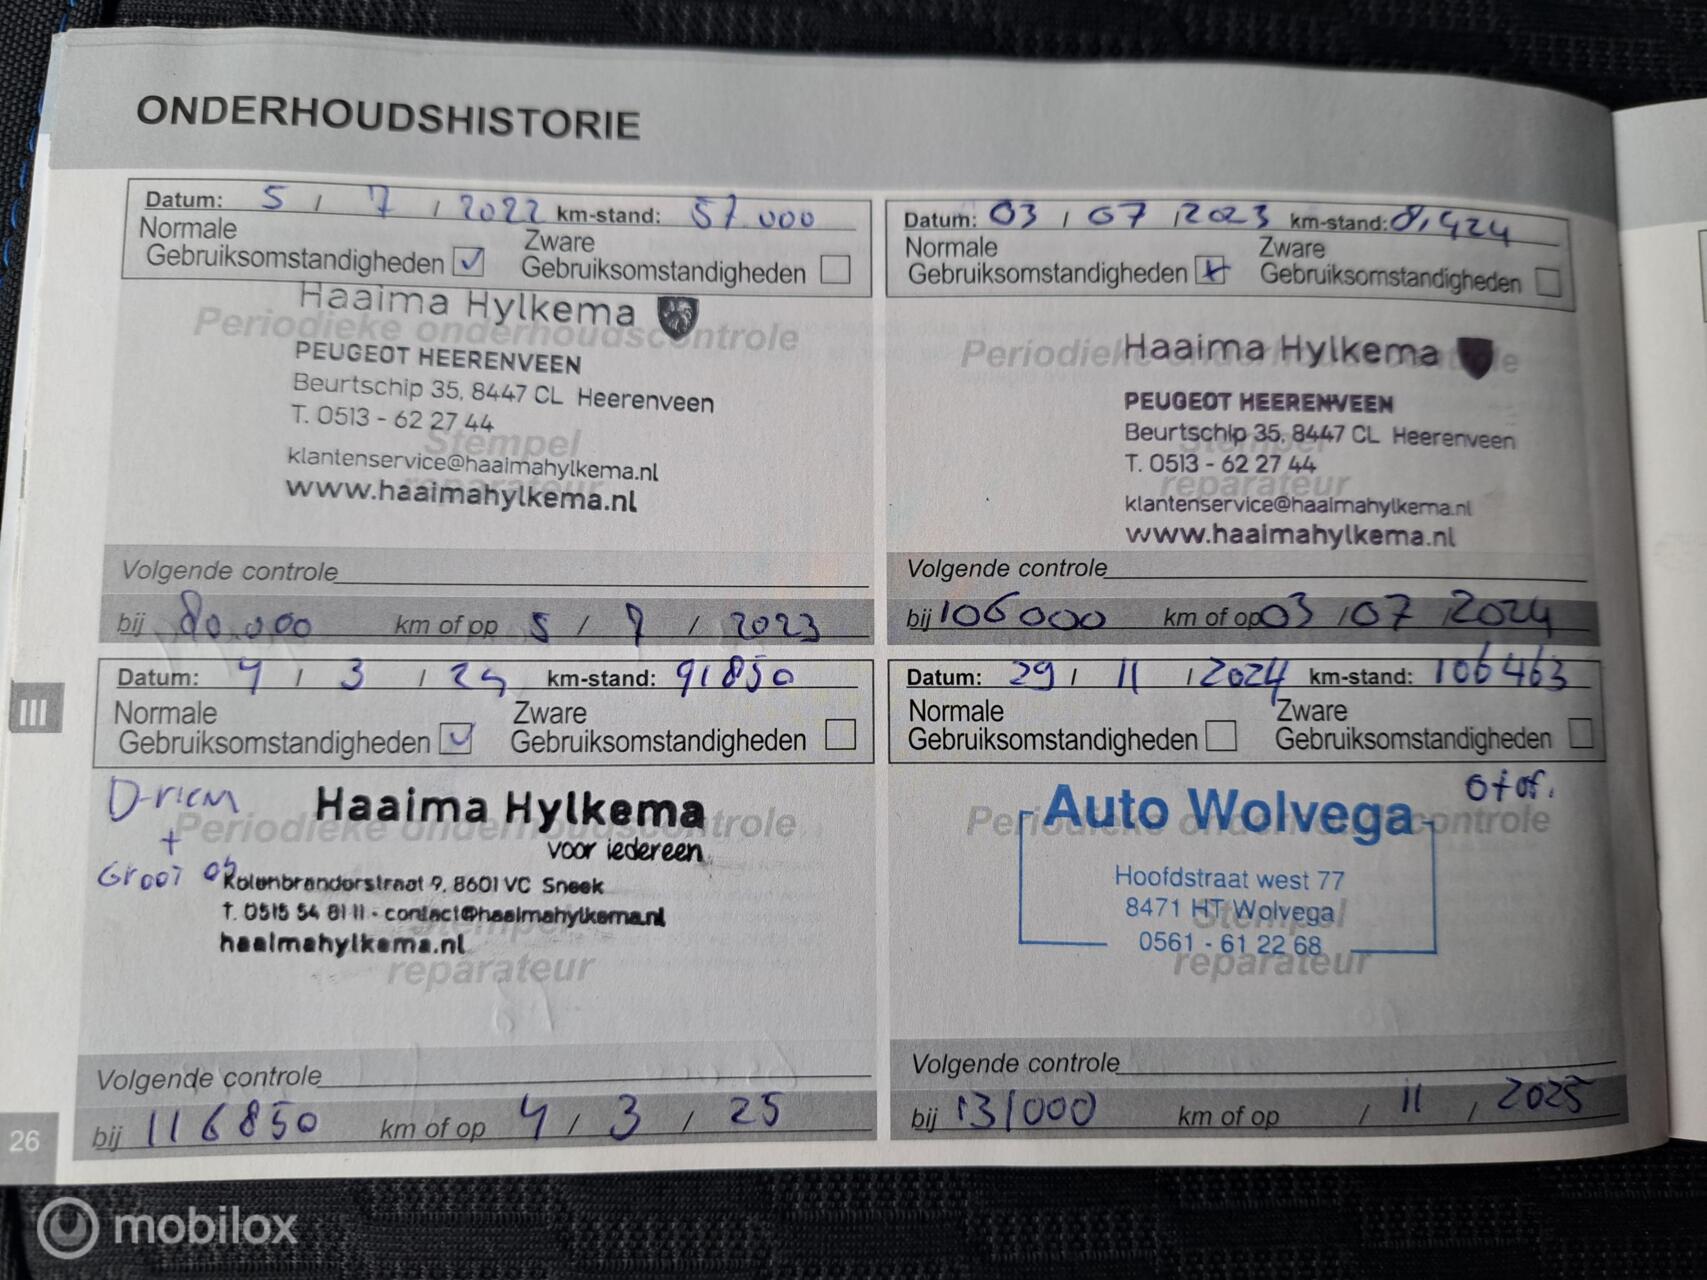 ONDERHOUDSHISTORIE
Datum: 5 / 7 / 2022 km-stand: 57.000
Normale
Gebruiksomstandigheden
Zware
Gebruiksomstandigheden
Periodieke onderhoudscontrole
Haaima Hylkema
PEUGEOT HEERENVEEN
Beurtschip 35, 8447 CL Heerenveen
T. 0513 - 62 27 44
Stempel
reparateur
klantenservice@haaimahylkema.nl
www.haaimahylkema.nl
Volgende controle
bij 80.000 km of op 5 / 7 / 2023
Datum: 03 / 07 / 2023 km-stand: 81424
Normale
Gebruiksomstandigheden
Zware
Gebruiksomstandigheden
Periodieke onderhoudscontrole
Haaima Hylkema
PEUGEOT HEERENVEEN
Beurtschip 35, 8447 CL Heerenveen
T. 0513 - 62 27 44
Stempel
reparateur
klantenservice@haaimahylkema.nl
www.haaimahylkema.nl
Volgende controle
bij 106000 km of op 03 / 07 / 2024
III
Datum: 4 / 3 / 24 km-stand: 91850
Normale
Gebruiksomstandigheden
Zware
Gebruiksomstandigheden
D-riem
+
Groot
Periodieke onderhoudscontrole
Haaima Hylkema
voor iedereen
Kolenbranderstraat 9, 8601 VC Sneek
T. 0515 54 81 11 - contact@haaimahylkema.nl
haaimahylkema.nl
Stempel
reparateur
Volgende controle
bij 116850 km of op 4 / 3 / 25
Datum: 29 / 11 / 2024 km-stand: 106463
Normale
Gebruiksomstandigheden
Zware
Gebruiksomstandigheden
Periodieke onderhoudscontrole
Auto Wolvega
Hoofdstraat west 77
8471 HT Wolvega
0561 - 61 22 68
Stempel
reparateur
Volgende controle
bij 131000 km of op / 11 / 2025
26
mobilox